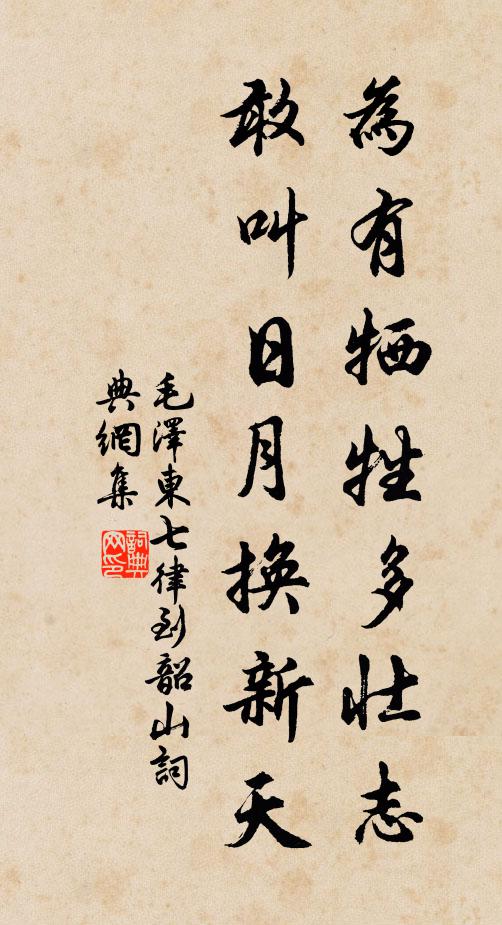 為有牺牲多壯志
敢叫日月換新天
毛澤東七律到韶山詞
典網集
詞典
网印